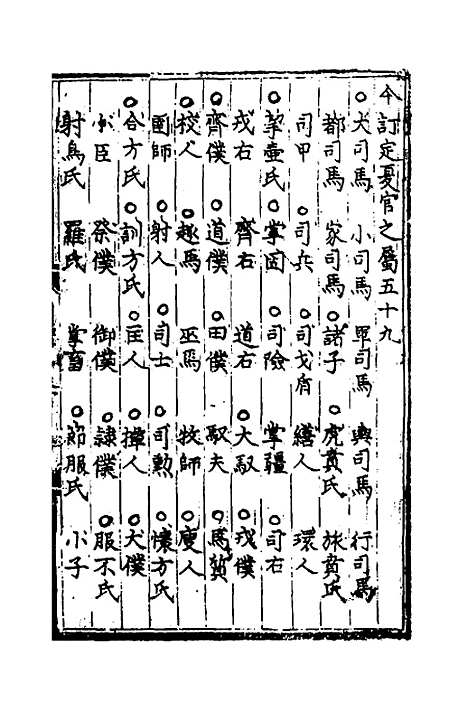 今訂定夏官之屬五十九
○大司馬 小司馬 軍司馬 輿司馬 行司馬
都司馬 家司馬 ○諸子 ○虎賁氏 旅賁氏
司甲 ○司兵 ○司戈盾 繕人 環人
○挈壺氏 ○掌固 ○司險 掌疆 ○司右
戎右 齊右 道右 ○大馭 ○戎僕
○齊僕 ○道僕 ○田僕 馭夫 ○馬質
○校人 ○趣馬 巫馬 牧師 ○廋人
圉師 ○射人 ○司士 ○司勳 ○懷方氏
○合方氏 ○訓方氏 ○匡人 ○撢人 ○大僕
小臣 祭僕 御僕 ○隸僕 ○服不氏
射鳥氏 羅氏 掌畜 ○節服氏 小子